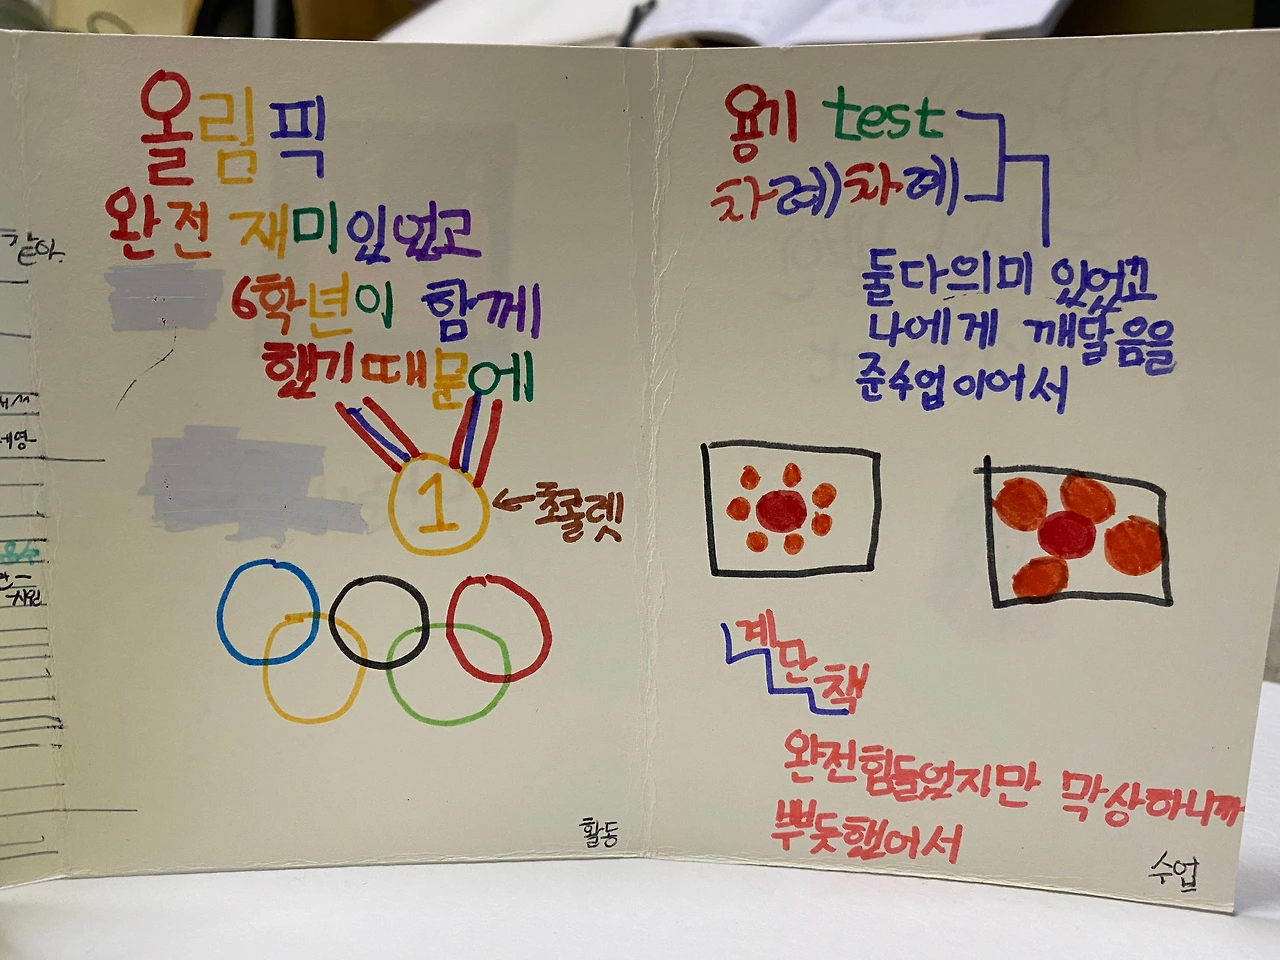 올림픽
완전 재미있었고
6학년이 함께
했기때문에
1
←초콜렛
활동
용기 test
차례)차례)
둘다의미 있었고
나에게 깨달음을
준수업이어서
계단책
완전힘들었지만 막상하니까
뿌듯했어서
수업
같아.